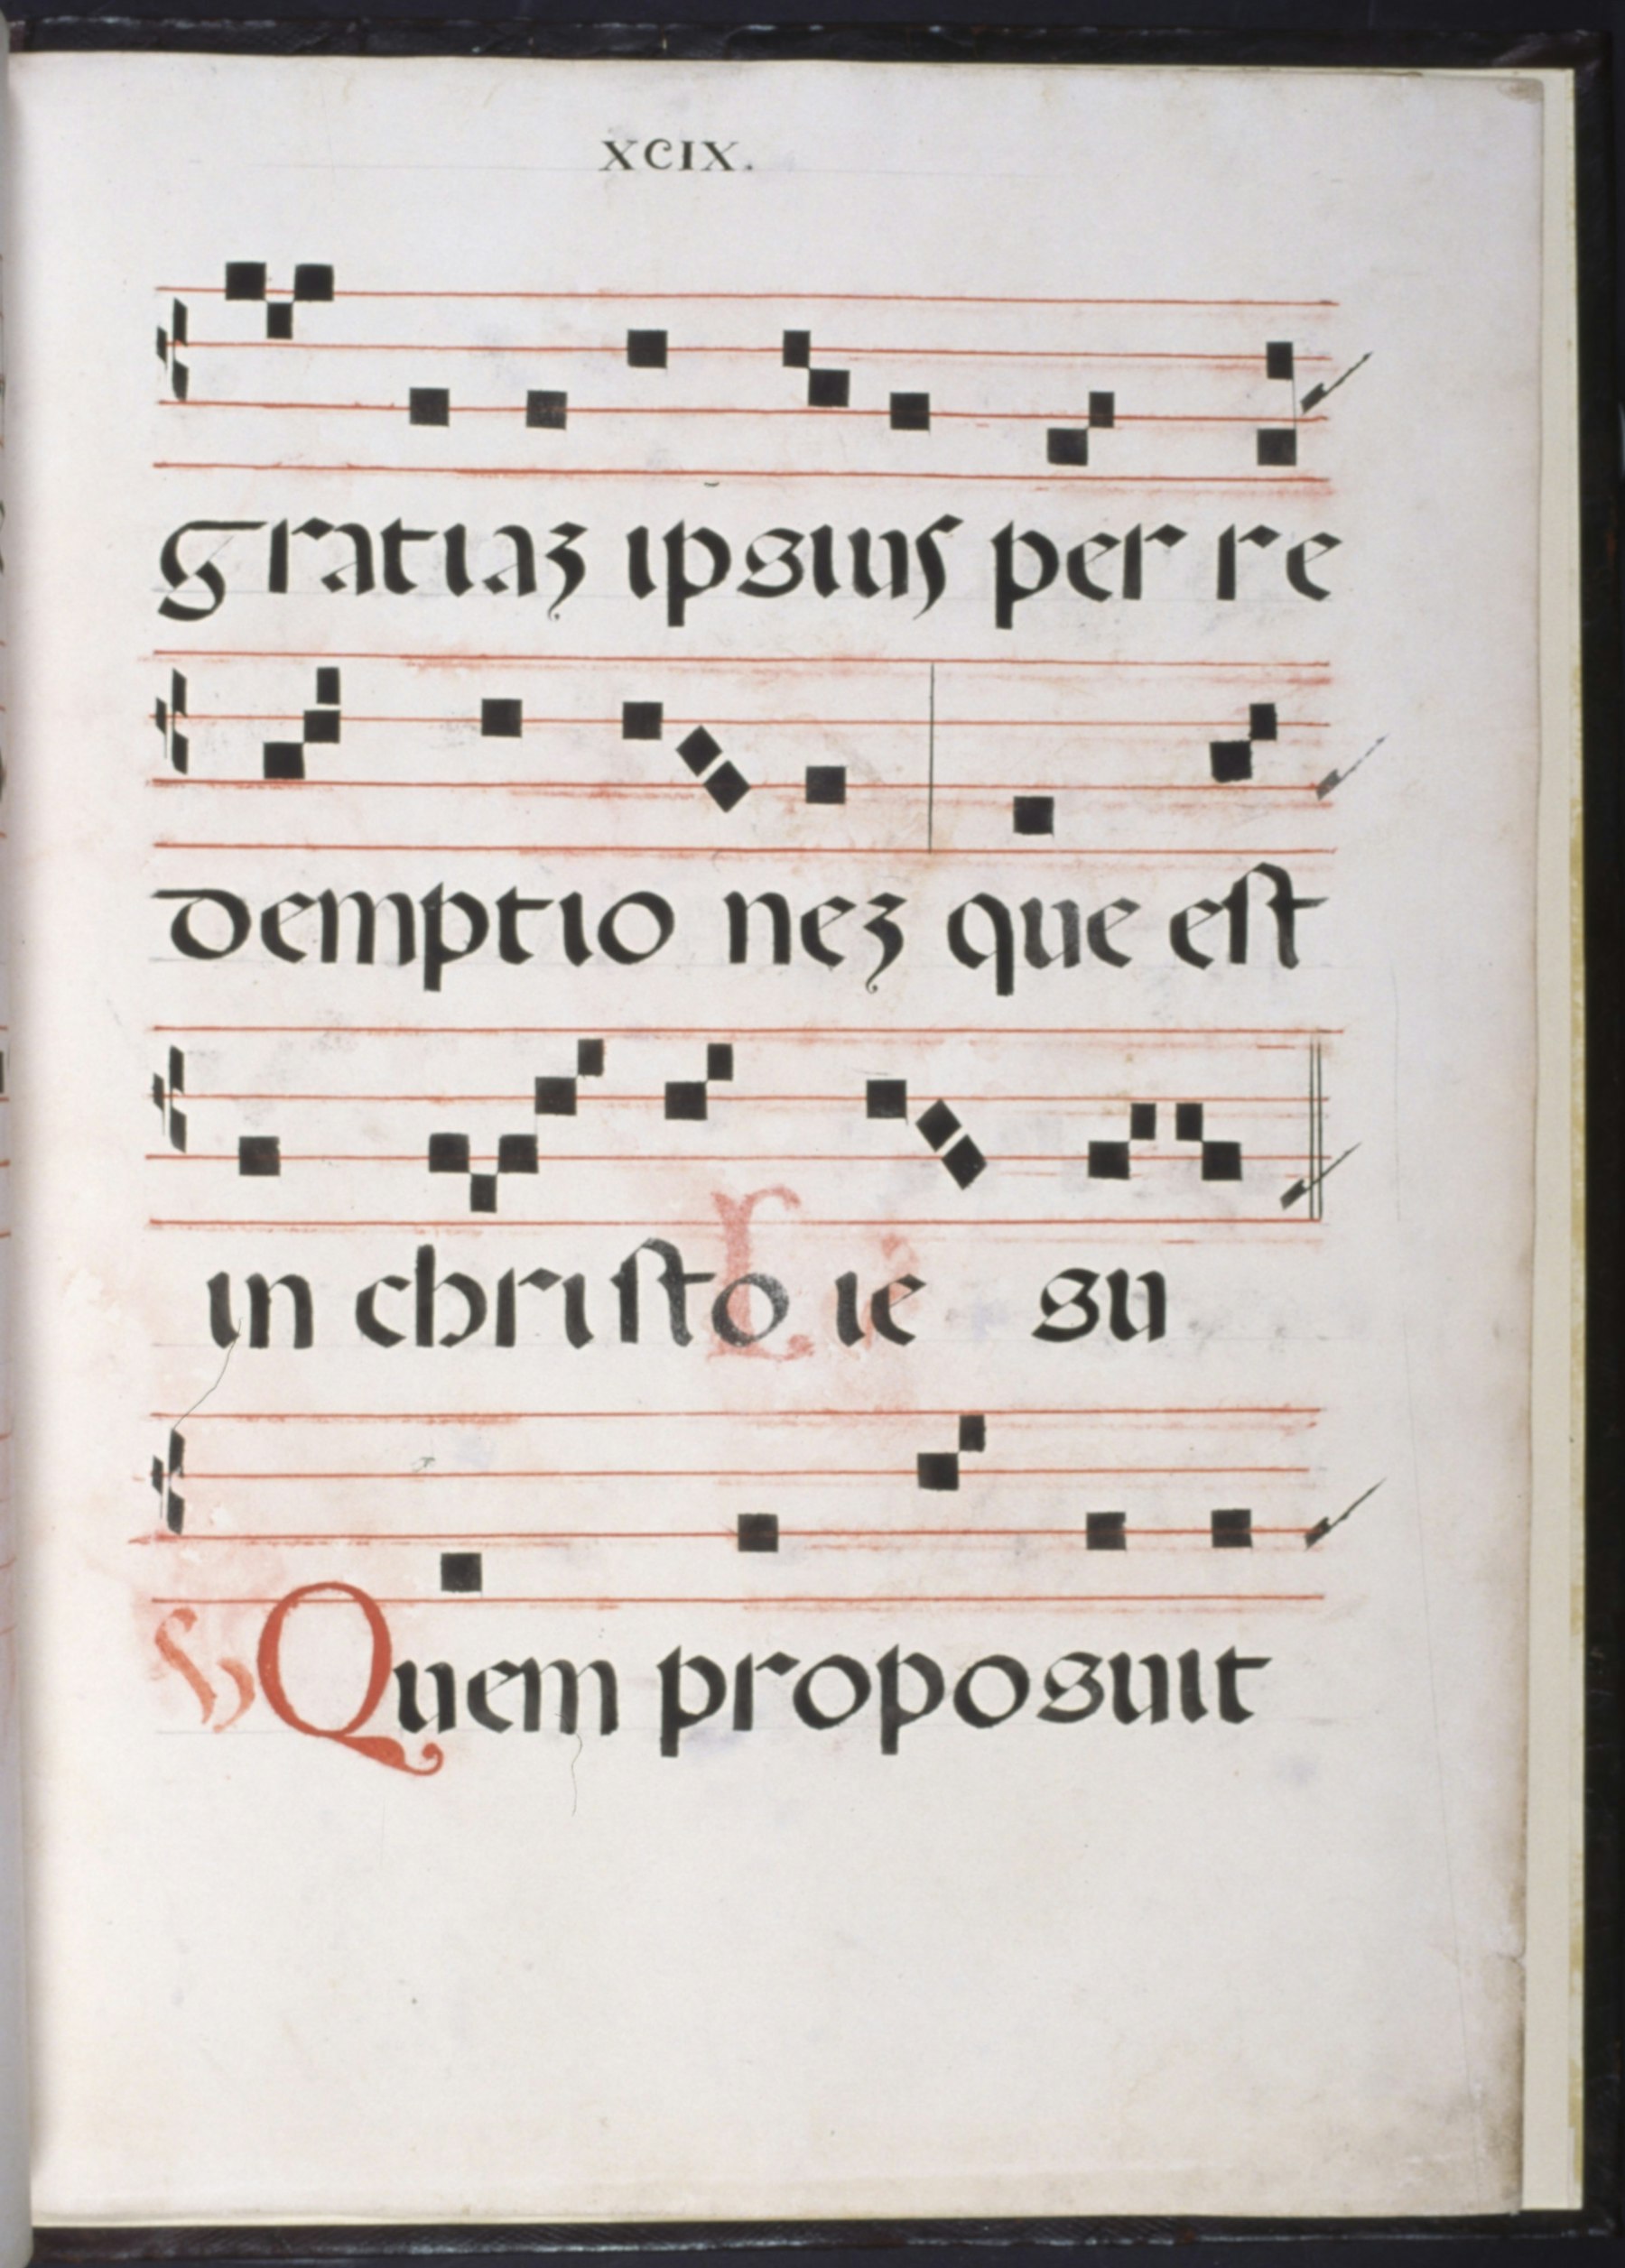 XCIX.
gratiaꝫ ipsius per re
demptio neꝫ que est
in christo ie su
℣ Quem proposuit